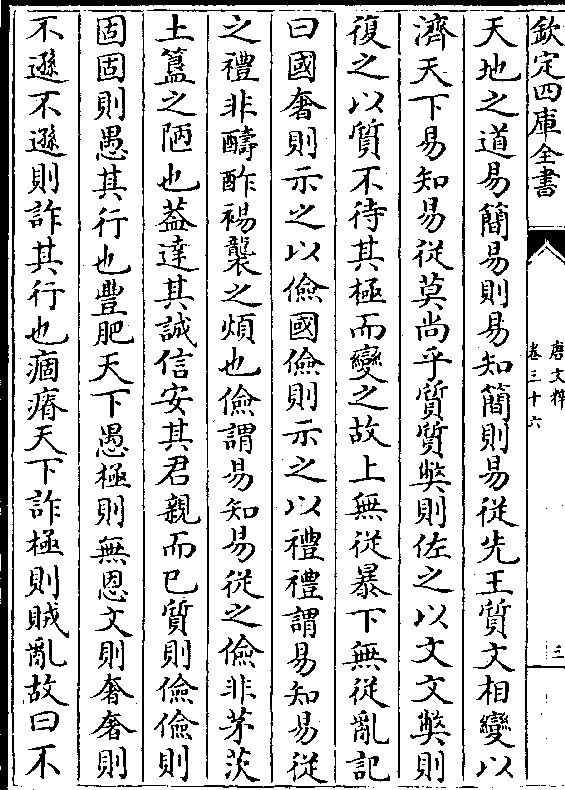 欽定四庫全書
唐文粹
卷三十六
三
天地之道易簡易則易知簡則易從先王質文相變以
濟天下易知易從莫尚乎質質弊則佐之以文文弊則
復之以質不待其極而變之故上無從暴下無從亂記
曰國奢則示之以儉國儉則示之以禮禮謂易知易從
之禮非醻酢裼襲之煩也儉謂易知易從之儉非茅茨
土簋之陋也葢達其誠信安其君親而已質則儉儉則
固固則愚其行也豐肥天下愚極則無恩文則奢奢則
不遜不遜則詐其行也痼瘠天下詐極則賊亂故曰不